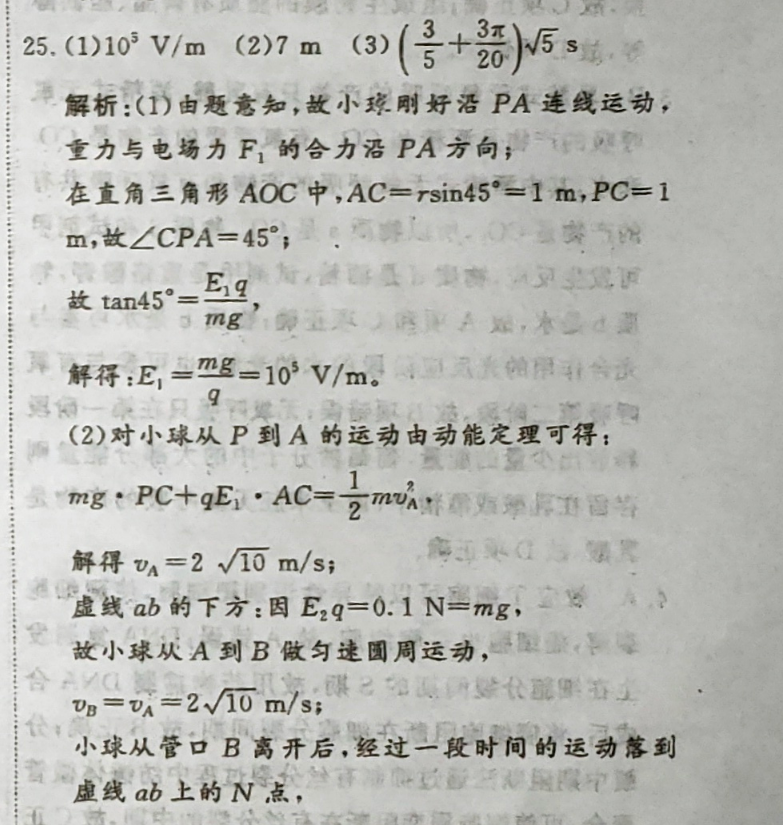 25. (1)10⁵ V/m (2)7 m (3)(3/5+3π/20)√5 s
解析:(1)由题意知,故小球刚好沿 PA 连线运动,
重力与电场力 F₁ 的合力沿 PA 方向;
在直角三角形 AOC 中,AC=rsin45°=1 m,PC=1
m,故∠CPA=45°;
故 tan45°=E₁q/mg,
解得:E₁=mg/q=10⁵ V/m。
(2)对小球从 P 到 A 的运动由动能定理可得:
mg·PC+qE₁·AC=1/2mv_A².
解得 v_A=2√10 m/s;
虚线 ab 的下方:因 E₂q=0.1 N=mg,
故小球从 A 到 B 做匀速圆周运动,
v_B=v_A=2√10 m/s;
小球从管口 B 离开后,经过一段时间的运动落到
虚线 ab 上的 N 点,